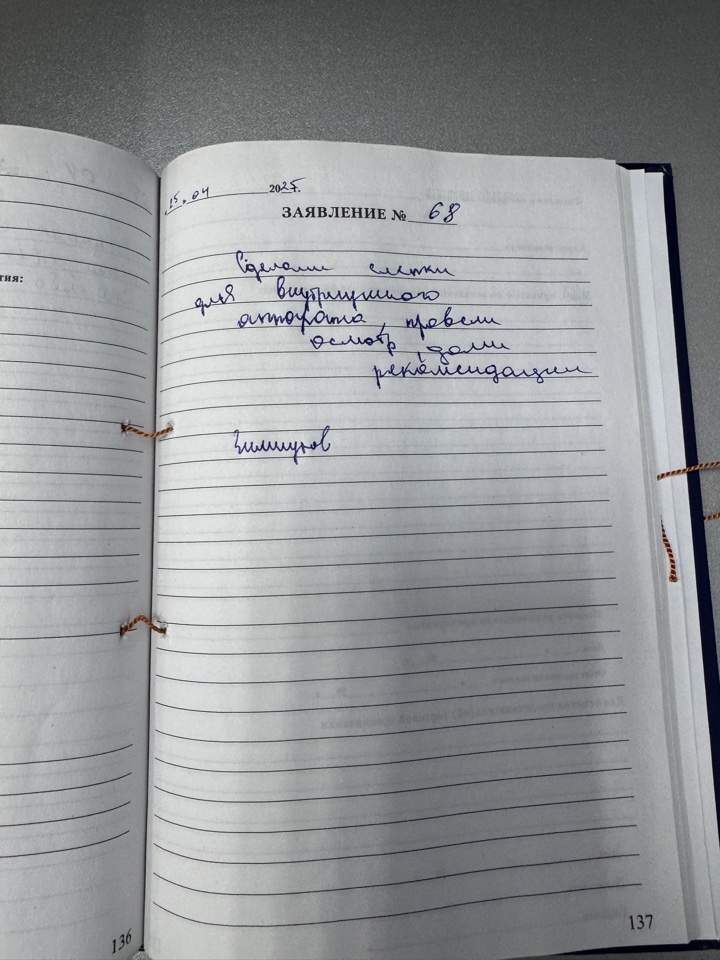 тия:
25.04 2025г.
ЗАЯВЛЕНИЕ № 68
Сделали слепки
для внутриушного
аппарата, провели
осмотр, дали
рекомендации
136
137